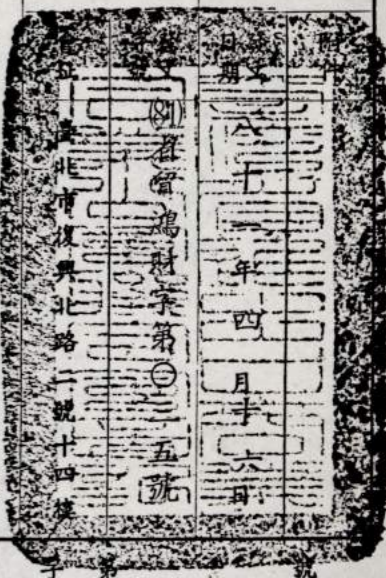 附件
發文日期 八十一年四月十六日
發文字號 (81)召晉鴻財字第〇三五號
臺北市復興北路二號十四樓
字 第 號